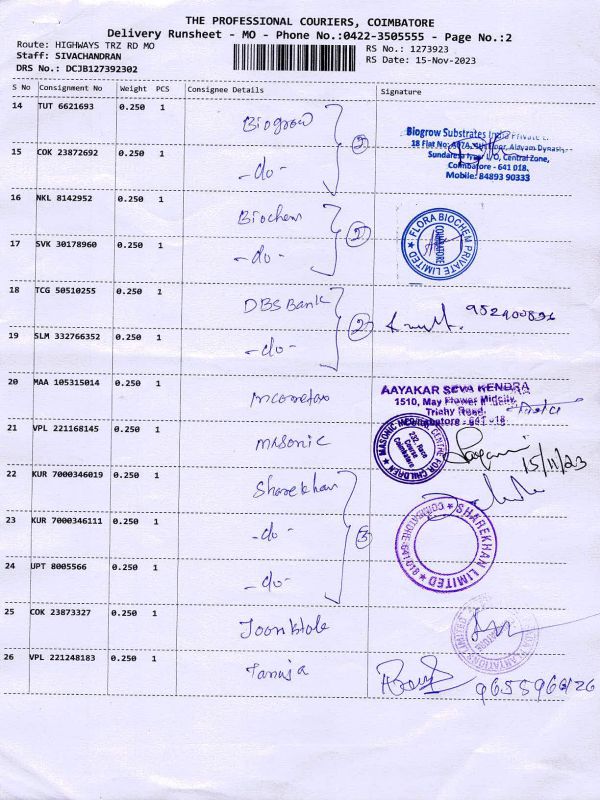 THE PROFESSIONAL COURIERS, COIMBATORE
Delivery Runsheet - MO - Phone No.:0422-3505555 - Page No.:2
Route: HIGHWAYS TRZ RD MO RS No.: 1273923
Staff: SIVACHANDRAN RS Date: 15-Nov-2023
DRS No.: DCJB127392302
S No Consignment No Weight PCS Consignee Details Signature
14 TUT 6621693 0.250 1 Biogrow
2
Biogrow Substrates India Private L.
18 Flat No: Aldyam Dynasty
I/O, Central Zone,
Coimbatore - 641 018.
Mobile: 84893 90333
15 COK 23872692 0.250 1 -do-
16 NKL 8142952 0.250 1 Biochem
2
FLORA BIOCHEM PRIVATE LIMITED
COIMBATORE
17 SVK 30178960 0.250 1 -do-
18 TCG 50510255 0.250 1 DBS Bank
2
19 SLM 332766352 0.250 1 -do-
20 MAA 105315014 0.250 1 Incometax
AAYAKAR SEVA KENDRA
1510, May Flower Midcity,
Trichy Road,
Coimbatore - 641 018
21 VPL 221168145 0.250 1 Masonic
MASONIC CENTRE FOR CHILDREN
232, Race Course Coimbatore
15/11/23
22 KUR 7000346019 0.250 1 Sharekhan
3
23 KUR 7000346111 0.250 1 -do-
SHAREKHAN LIMITED
COIMBATORE-641 018
24 UPT 8005566 0.250 1 -do-
25 COK 23873327 0.250 1
26 VPL 221248183 0.250 1 Tanuja